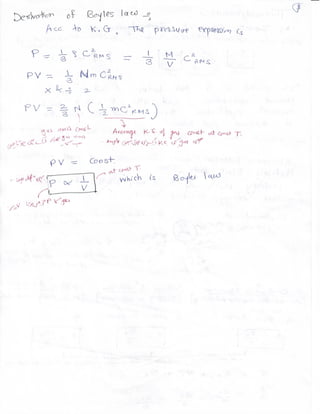 Derivation of Boyles law :-
Acc to K.G. The pressure expression is
P = 1/3 ρ C²RMS = 1/3 M/V C²RMS
PV = 1/3 Nm C²RMS
x & ÷ 2
PV = 2/3 N ( 1/2 mC²RMS )
Average K.E of gas const at const T.
PV = const.
at const T.
P ∝ 1/V which is Boyles law